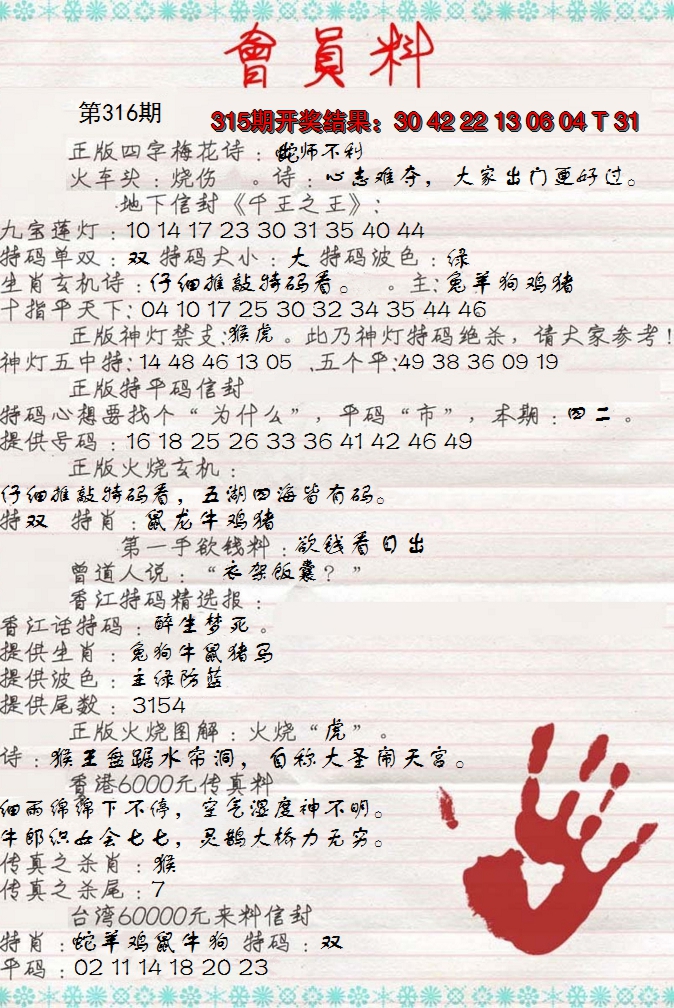 會員料
第316期
315期开奖结果：30 42 22 13 06 04 T 31
正版四字梅花诗：蛇师不利
火车头：烧伤 。诗：心志难夺，大家出门更好过。
.地下信封《千王之王》：
九宝莲灯：10 14 17 23 30 31 35 40 44
特码单双：双 特码大小：大 特码波色：绿
生肖玄机诗：仔细推敲特码看。 。主：兔羊狗鸡猪
十指平天下：04 10 17 25 30 32 34 35 44 46
正版神灯禁支：猴虎。此乃神灯特码绝杀，请大家参考！
神灯五中特：14 48 46 13 05 .五个平：49 38 36 09 19
正版特平码信封
特码心想要找个“为什么”，平码“市”，本期：四二。
提供号码：16 18 25 26 33 36 41 42 46 49
正版火烧玄机：
仔细推敲特码看，五湖四海皆有码。
特双 特肖：鼠龙牛鸡猪
第一手欲钱料：欲钱看日出
曾道人说：“衣架饭囊？”
香江特码精选报：
香江话特码：醉生梦死。
提供生肖：兔狗牛鼠猪马
提供波色：主绿防蓝
提供尾数：3154
正版火烧图解：火烧“虎”。
诗：猴王盘踞水帘洞，自称大圣闹天宫。
香港6000元传真料
细雨绵绵下不停，空气湿度神不明。
牛郎织女会七七，灵鹊大桥力无穷。
传真之杀肖：猴
传真之杀尾：7
台湾60000元来料信封
特肖：蛇羊鸡鼠牛狗 特码：双
平码：02 11 14 18 20 23